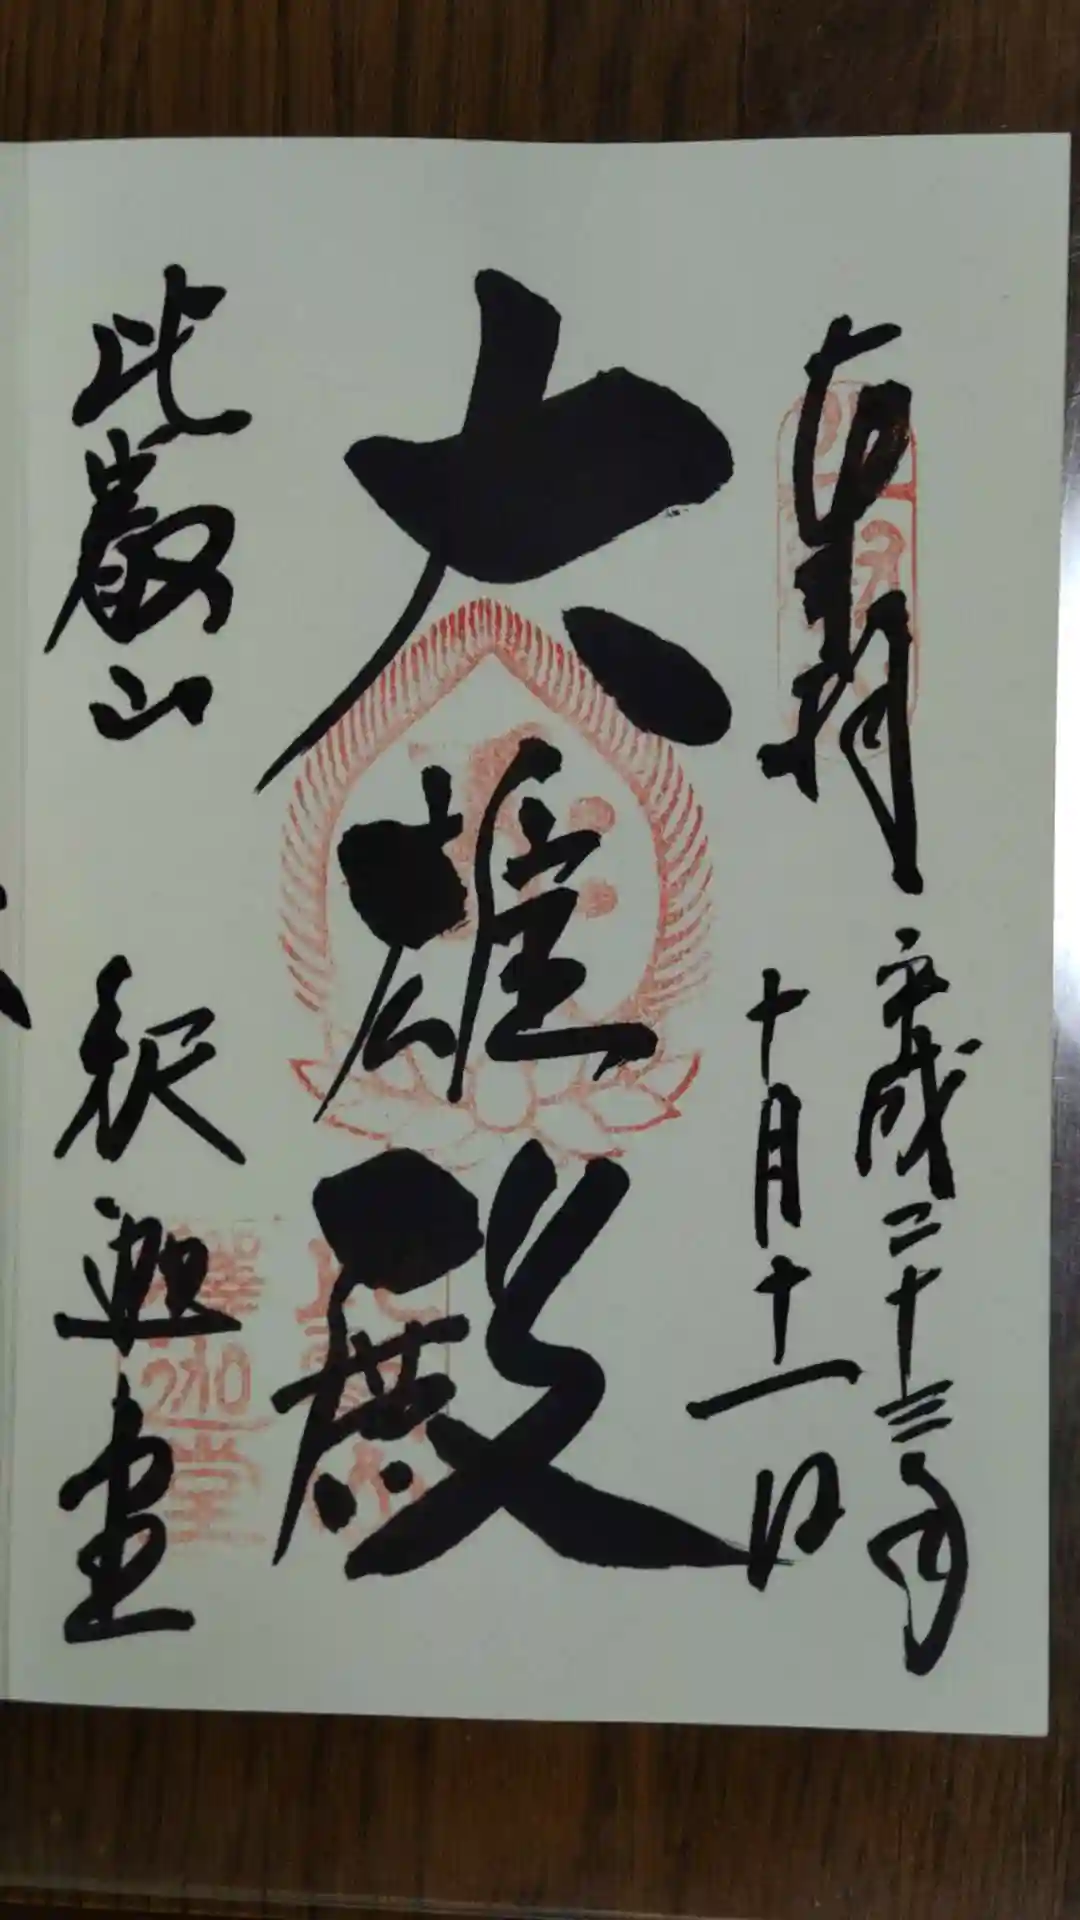 奉拝
平成二十三年
十月十一日
大雄殿
比叡山 釈迦堂
釋迦堂